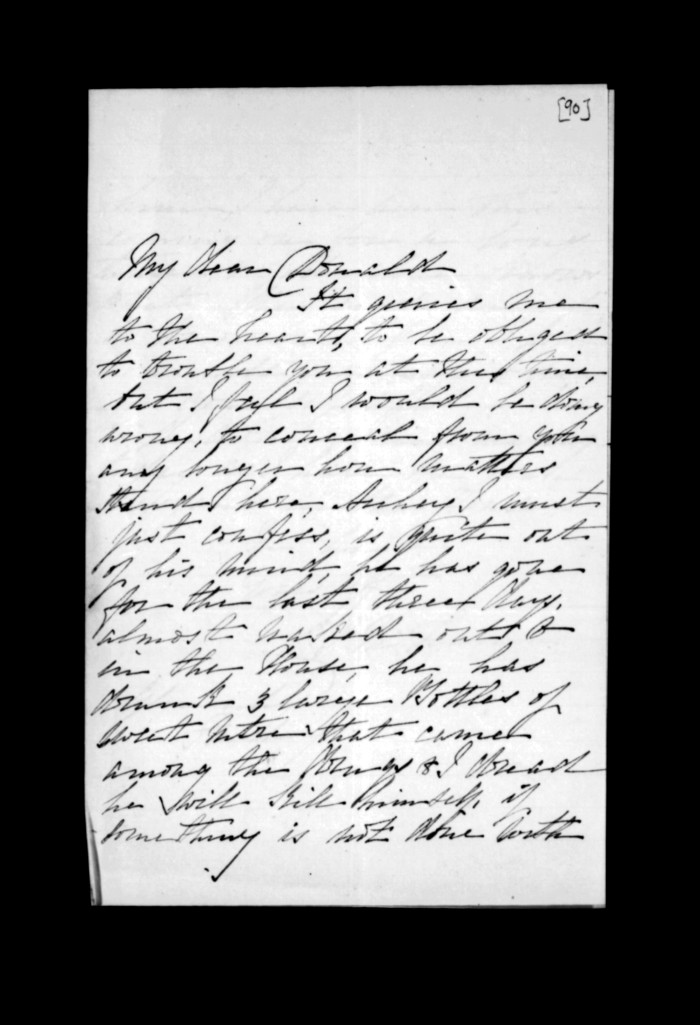 [90]
My Dear Donald
It greives me
to the heart, to be obliged
to trouble you at this time,
but I feel I would be doing
wrong, to conceal from you
any longer how matters
stand here, I must
just confess, is quite out
of his mind, he has gone
for the last three days,
almost naked out &
in the House, he has
drunk 3 large Bottles of
sweet nitre that came
among the drugs & I dread
he will kill himself, if
something is not done with